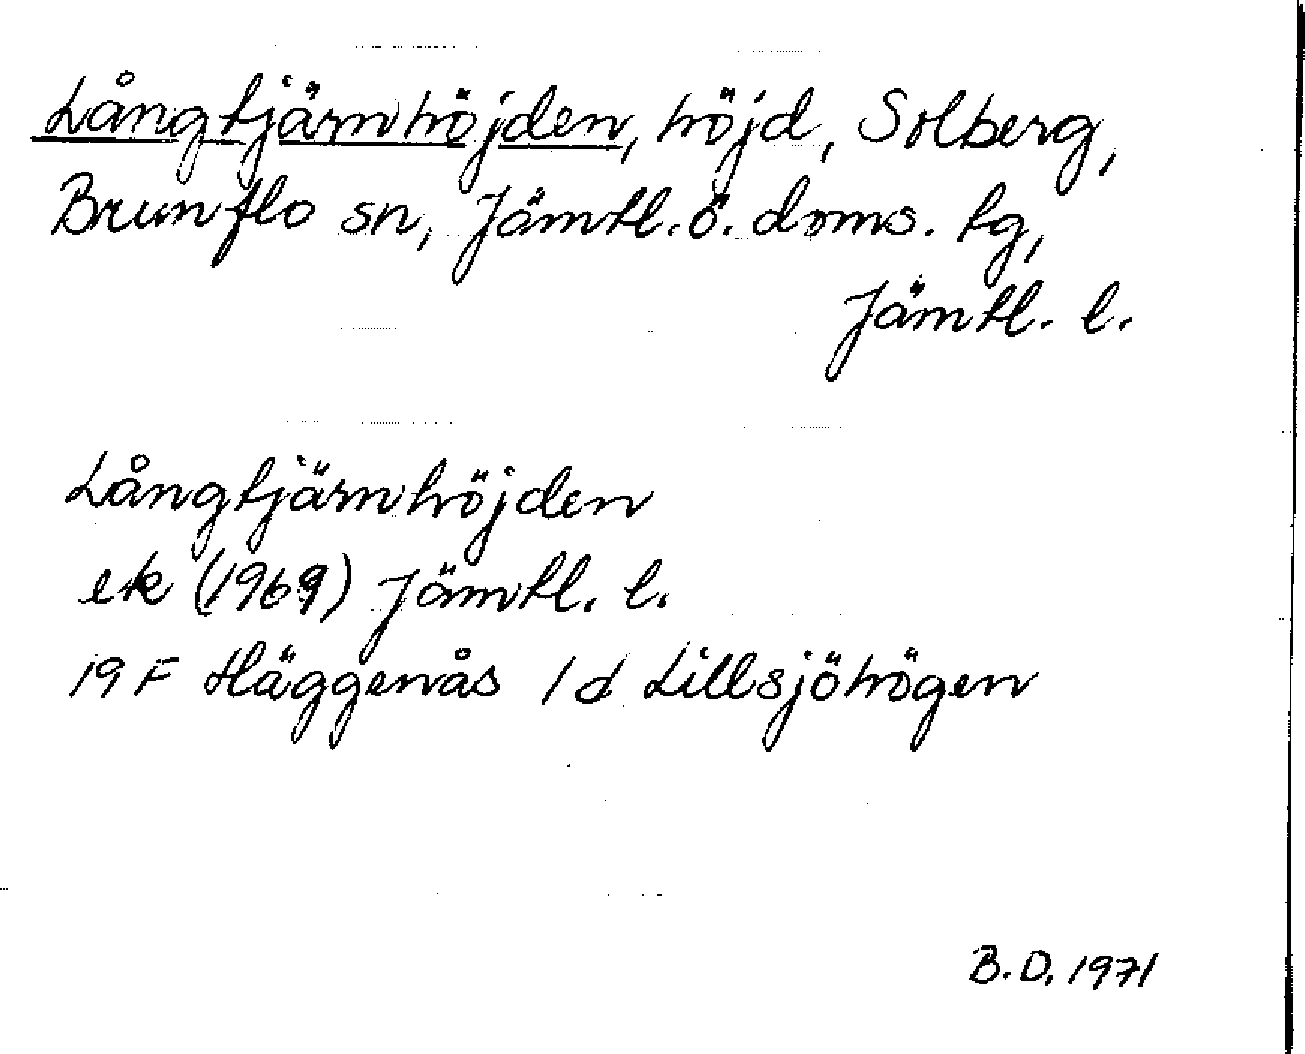 Långtjärnhöjden, höjd, Solberg,
Brunflo sn, Jämtl.ö.doms. tg,
Jämtl. l.
Långtjärnhöjden
ek (1969) Jämtl. l.
19 F Häggenås 1d Lillsjöhögen
B.D. 1971